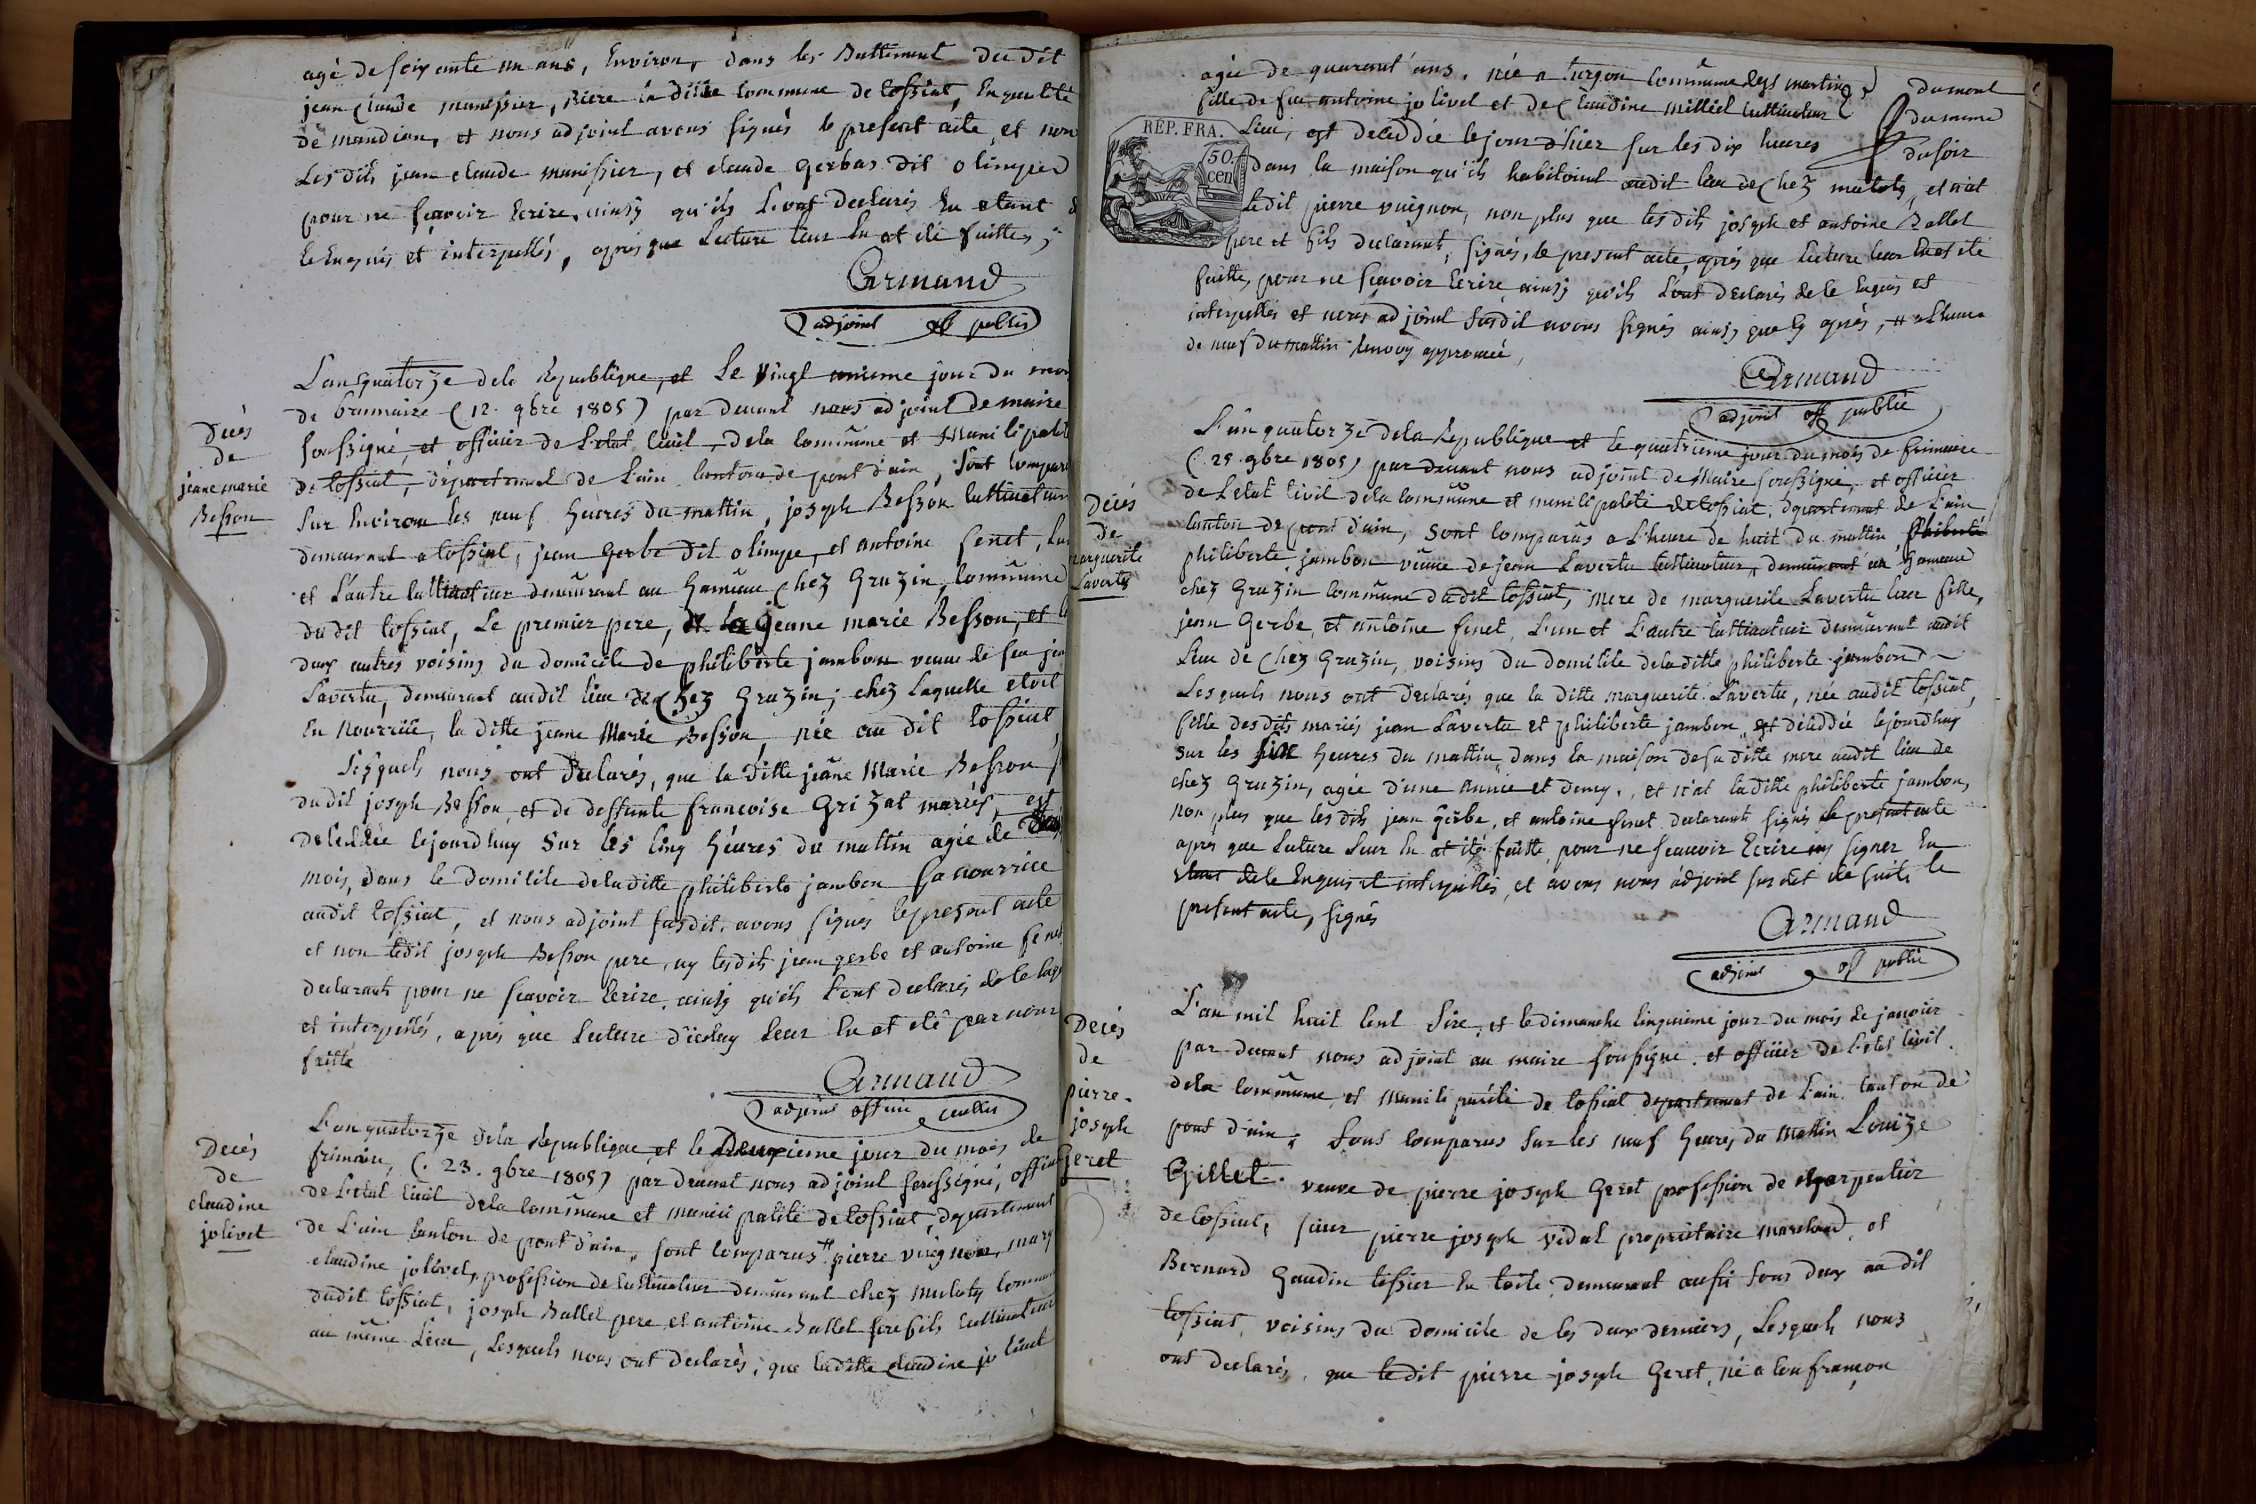 agé de soixante un ans, Environ, dans les Battiment du dit
jean Claude manissier, Riere la ditte Commune de tossiat, En qualité
de mandian, et nous adjoint avons signés le present acte, et non
Les dits jean claude manissier, et claude gerbas dit olimped
pour ne scavoir Ecrire, ainsy qu'ils L'ont declarés En etant de
ce Enquis et interpellés, après que Lecture leur En at été faitte,
Armand
adjoint off public
L'an quatorze dela Republique, et Le vingt unieme jour du mois
de brumaire (12. 9bre 1805) par devant nous adjoint de maire
soussigné, et officier de L'etat Civil, dela Commune et Municipalité
de tossiat, département de L'ain, Canton de pont d'ain, Sont Comparu
Sur Environ les neuf heures du mattin, joseph Besson Cultivateur
demeurant a tossiat, jean Gerbe dit olimpe, et antoine fenet, L'un
et L'autre Cultivateur demeurant au Hameau Chez Gruzin, Commune
dudit tossiat, Le premier pere, de la jeane marie Besson, et les
deux autres voisins du domicile de philiberte jambon veuve de feu jean
Lavertu, demeurant audit lieu de Chez Gruzin; chez Laquelle etoit
En Nourrice, la ditte jeane Marie Besson, née au dit tossiat,
Lesquels nous ont declarés, que la ditte jeane Marie Besson
du dit joseph Besson, et de deffunte francoise Grizat mariés, est
deceddée cejourdhuy Sur les Cinq heures du mattin agée de
mois, dans le Domicile dela ditte philiberte jambon sa nourrice
audit tossiat, et nous adjoint susdit avons signés le present acte
et non ledit joseph Besson pere, ny lesdits jean gerbe et antoine fenet
declarants pour ne scavoir Ecrire ainsy qu'ils L'ont declarés de ce Enquis
et interpellés, après que Lecture d'icelluy Leur En at eté par nous
faitte
Armand
adjoint officier public
L'an quatorze dela Republique, et le Deuxieme jour du mois de
frimaire, (. 23. 9bre 1805) par devant nous adjoint soussigné, officier
de L'etat Civil dela Commune et municipalité de tossiat, departement
de L'ain Canton de pont d'ain, sont Comparus # pierre vuignon, mary
claudine jolivet, profession de Cultivateur demeurant chez mulots Commune
dudit tossiat, joseph Ballet pere et antoine Ballet fils Cultivateurs
au même Lieu, Lesquels nous ont declarés, que laditte claudine jolivet
Decés
de
jeane marie
Besson
Decés
de
claudine
jolivet
agée de quarant ans, née a turgon Commune de st martin
fille de feu antoine jolivet et de Claudine milliet Cultivateur
dumont
du meme
Lieu, est deceddée le jour d'hier sur les dix heures
du soir
dans la maison qu'ils habitoint audit lieu de Chez mulots, et n'at
ledit pierre vuignon, non plus que lesdits joseph et antoine Ballet
pere et fils declarant, signés, le present acte, après que Lecture leur En at eté
faitte, pour ne scavoir Ecrire ainsy qu'ils L'ont declarés de ce Enquis et
interpellés et nous adjoint susdit avons signés ainsy que cy après, # a L'heure
de neuf du mattin Renvoy approuvé,
REP. FRA.
50.
cen
Armand
adjoint off public
L'an quatorze dela Republique et le quatrieme jour du mois de frimaire
(. 25. 9bre 1805) par devant nous adjoint de Maire soussigné, et officier
de L'etat Civil dela Commune et municipalité de tossiat, departement de L'ain
Canton de pont d'ain, Sont Comparus a L'heure de huit du mattin philiberte
philiberte jambon veuve de jean Lavertu Cultivateur, demeurant au hameau
chez Gruzin Commune dudit tossiat, mere de marguerite Lavertu leur fille,
jean Gerbe, et antoine fenet, L'un et L'autre Cultivateur demeurant audit
Lieu de Chez Gruzin, voisins du domicile dela ditte philiberte jambon
Lesquels nous ont declarés que la ditte marguerite Lavertu, née audit tossiat,
fille desdits mariés jean Lavertu et philiberte jambon, est deceddée cejourdhuy
Sur les six heures du mattin, dans la maison de sa ditte mere audit lieu de
chez Gruzin, agée d'une année et demy, et n'at laditte philiberte jambon,
non plus que les dits jean gerbe, et antoine fenet declarant signés le present acte
après que Lecture Leur En at été faitte, pour ne scauvoir Ecrire ny signer En
etant de ce Enquis et interpellés, et avons nous adjoint susdit de suite le
present acte, signés
Armand
adjoint off public
L'an mil huit Cent Sixe, et le dimanche Cinquieme jour du mois de janvier
par devant nous adjoint au maire soussigné et officier de L'etat Civil
dela Commune, et Municipalité de tossiat departement de L'ain, Canton de
pont d'ain, Sont Comparus Sur les neuf heures du Mattin Louize
Gillet veuve de pierre joseph Geret profession de charpentier
de tossiat, sieur pierre joseph vidal propriétaire marchand, et
Bernard Gaudin tissier En toile, demeurant aussi tous deux au dit
tossiat, voisins du domicile de Ces deux derniers, Lesquels nous
ont declarés, que ledit pierre joseph Geret, né a Confrancon
Decés
de
marguerite
Lavertu
Decés
de
pierre
joseph
Geret